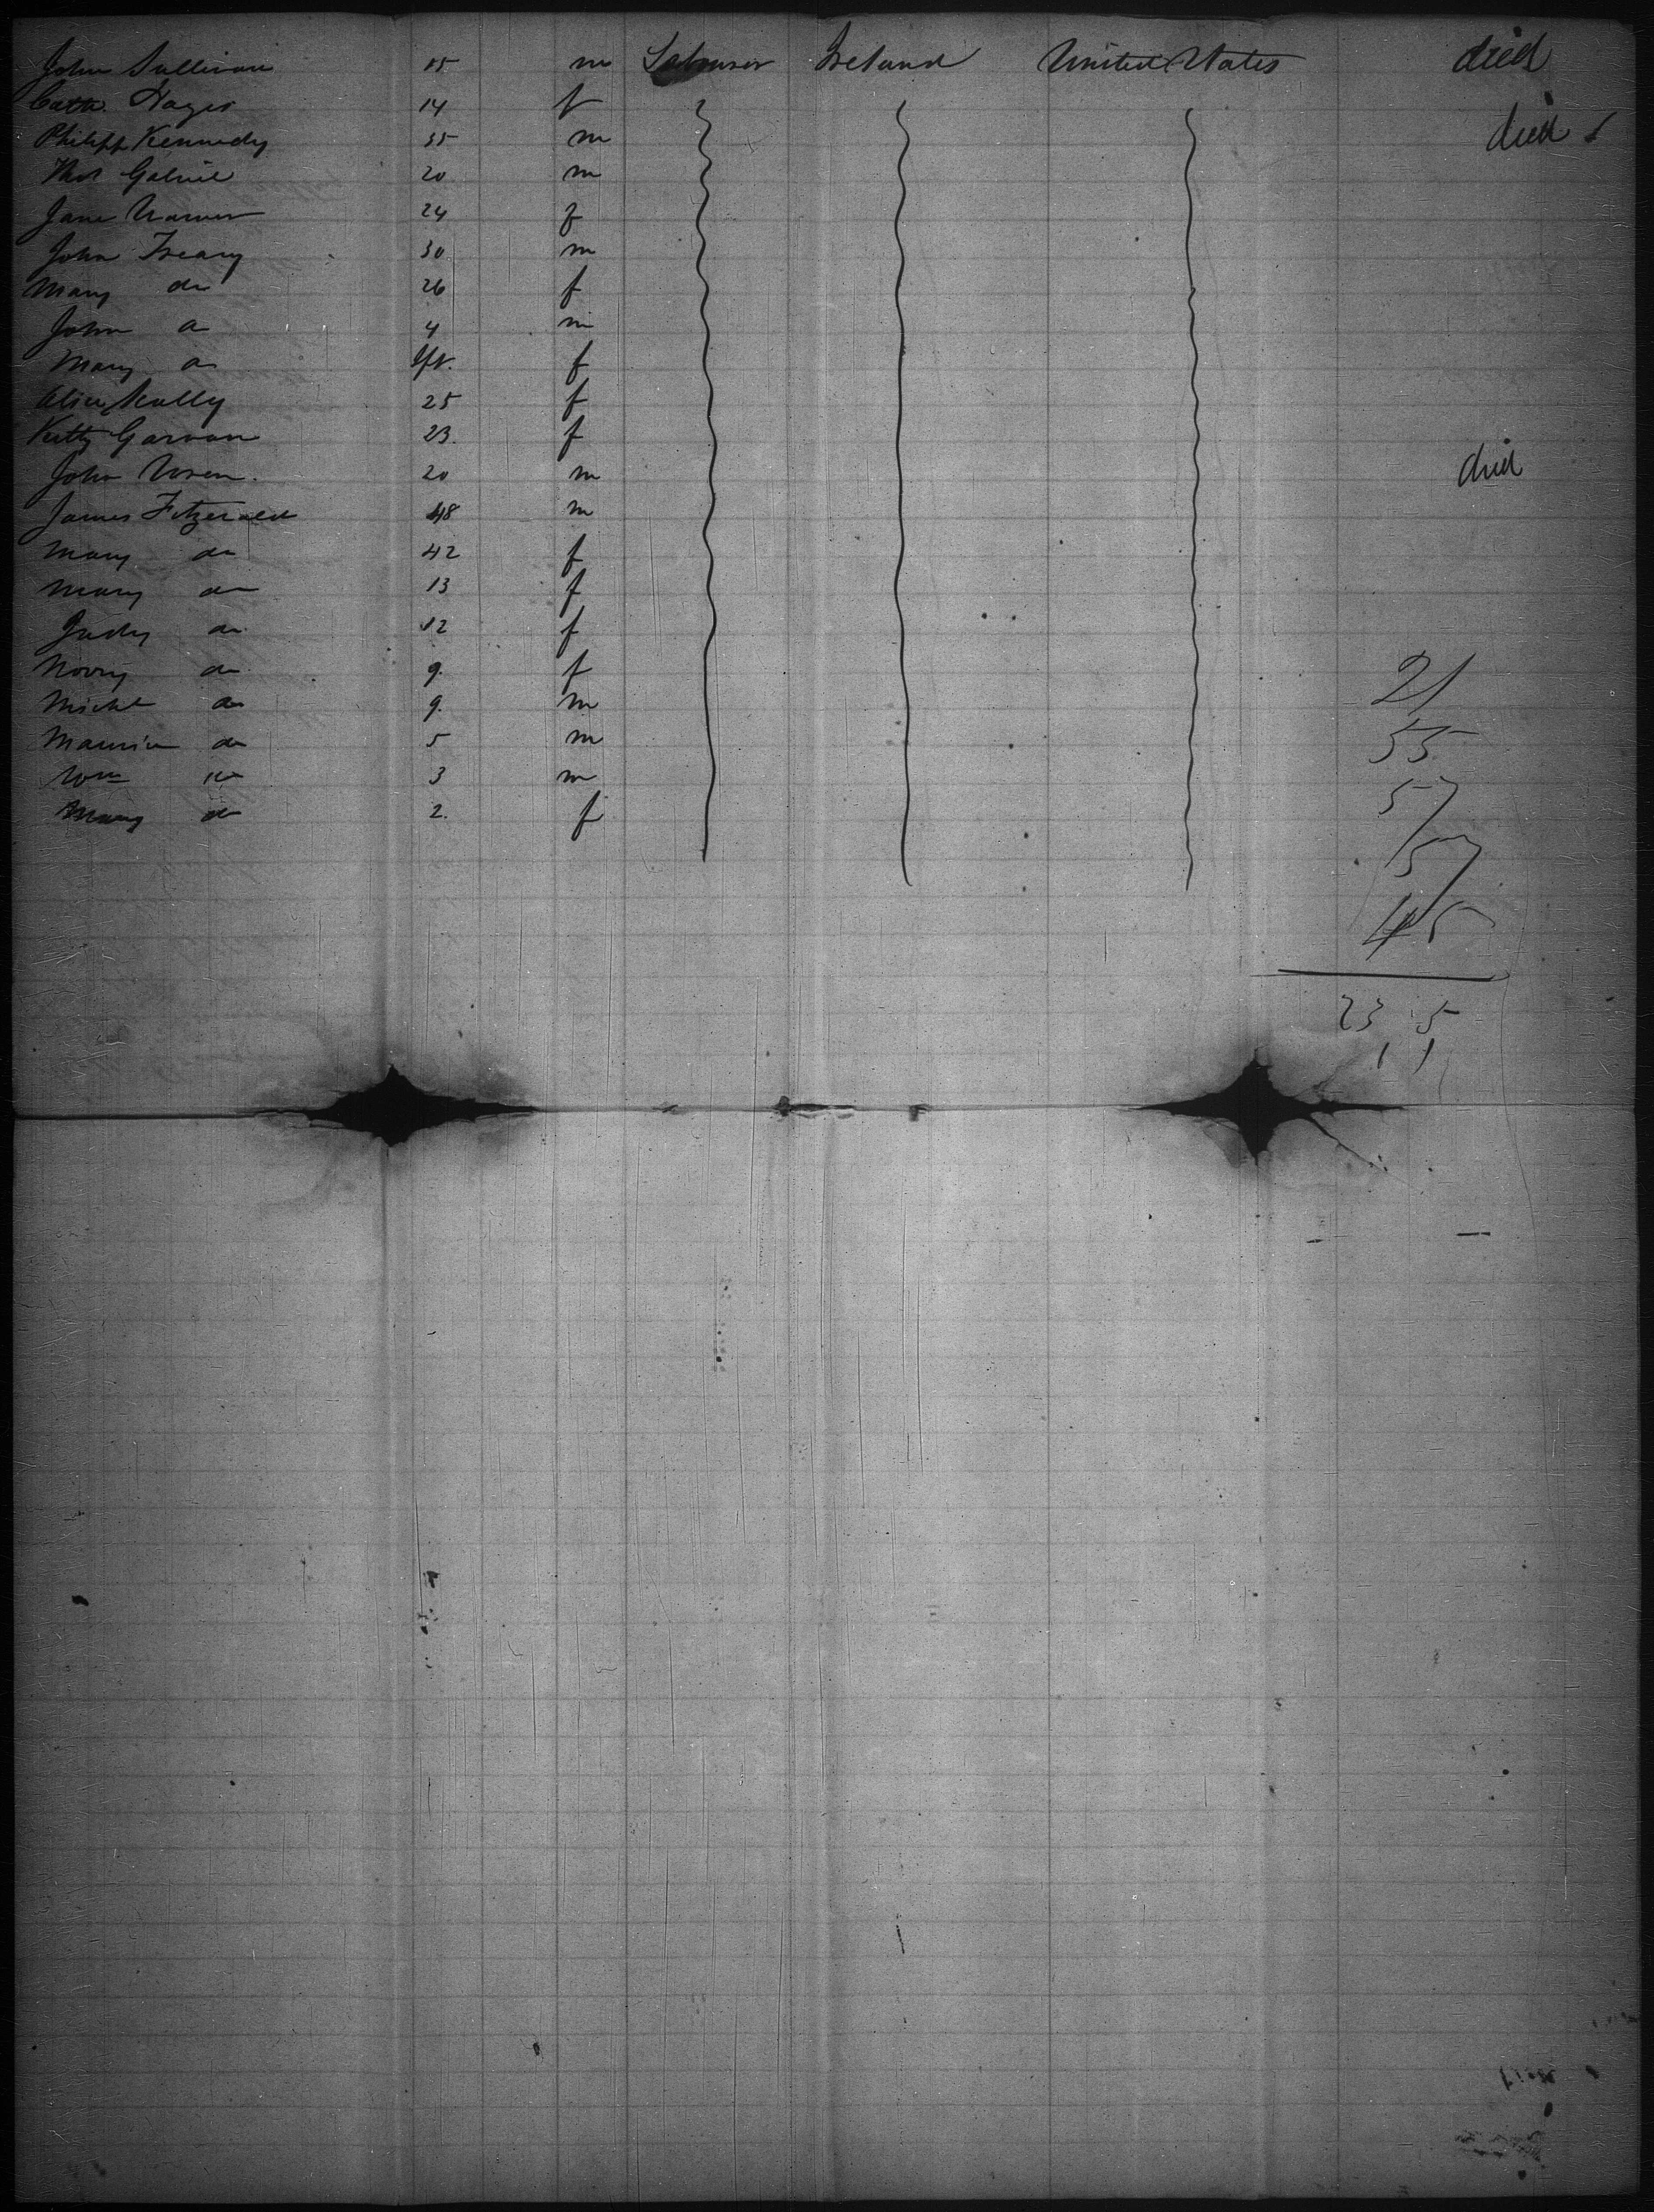 John Sullivan 15 m Labourer Ireland United States died
Cath. Hayes 14 f
Philipp Kennedy 35 m died
Thos 20 m
Jane 24 f
John Treary 30 m
Mary do 26 f
John do 4 m
Mary do Inft. f
Alice Scully 25 f
Kitty Garvan 23. f
John 20 m died
James Fitzgerald 48 m
Mary do 42 f
Mary do 13 f
Judy do 12 f
Norry do 9. f
Michl do 9. m
Maurice do 5 m
Wm do 3 m
Mary do 2. f
21
55
57
57
45
23 5
1 1